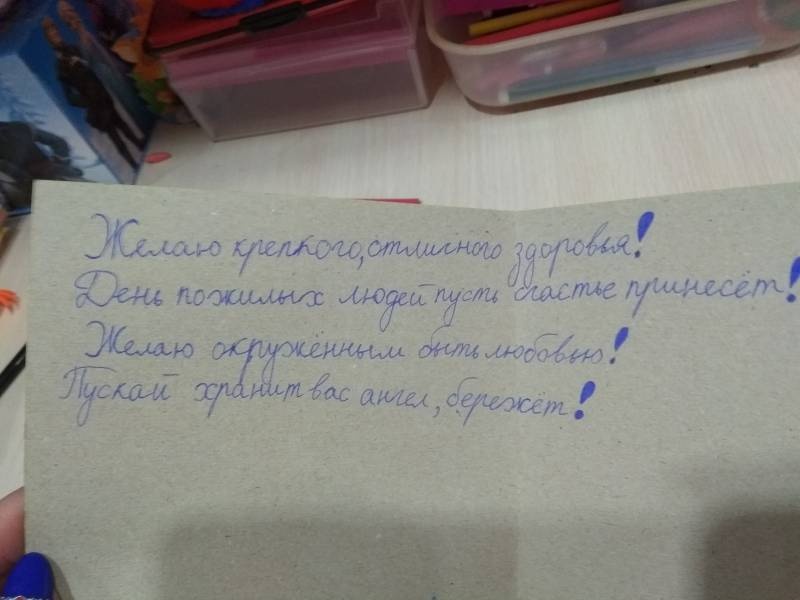 Желаю крепкого, отличного здоровья!
День пожилых людей пусть счастье принесёт!
Желаю окружённым быть любовью!
Пускай хранит вас ангел, бережёт!